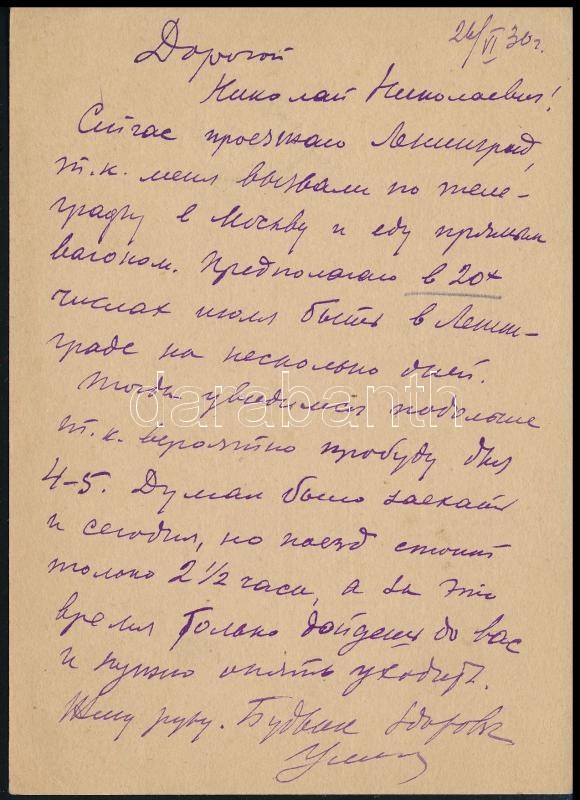 26/VI 30 г.
Дорогой
Николай Николаевич!
Сейчас проезжаю Ленинград,
т.к. меня вызвали по теле-
графу в Москву и еду прямым
вагоном. Предполагаю в 20х
числах июля быть в Ленин-
граде на несколько дней.
Тогда увидимся подольше
т.к. вероятно пробуду дня
4-5. Думал было заехать
и сегодня, но поезд стоит
только 2 1/2 часа, а за это
время только дойдешь до вас
и нужно опять уходить.
Жму руку. Будьте здоровы
darabanth